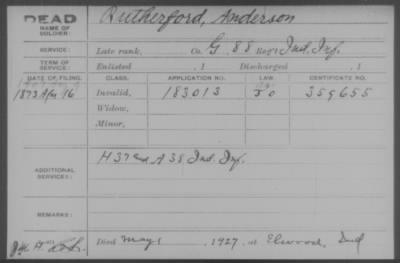 DEAD
NAME OF SOLDIER: Rutherford, Anderson
SERVICE: Late rank, Co. G, 88 Reg't Ind. Inf.
TERM OF SERVICE: Enlisted , 1 Discharged , 1
DATE OF FILING. CLASS. APPLICATION NO. LAW. CERTIFICATE NO.
1873 Apr 16 Invalid, 183013 359655
Widow,
Minor,
ADDITIONAL SERVICES: H 37 and A 38 Ind. Inf.
REMARKS:
Died May 1 , 1927, at Elwood, Ind